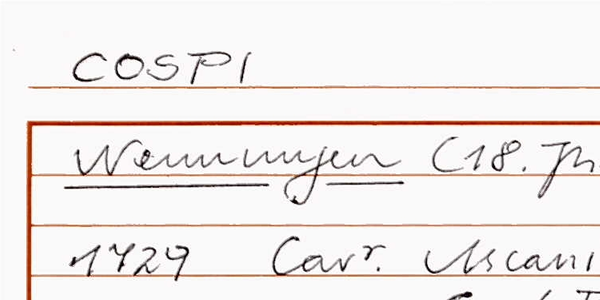 COSPI
Nennungen (18. Jh.
1729 Cavr. Ascani